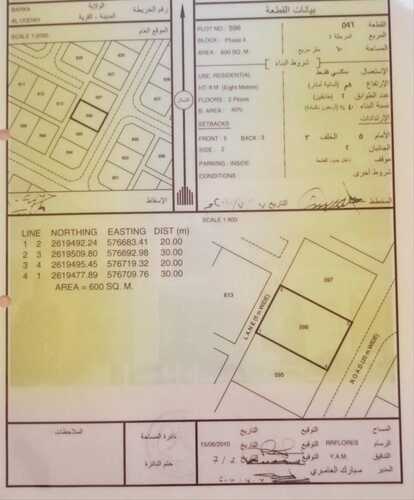 الولاية
رقم الخريطة
BARKA
المدينة - القرية
AL UQDAH
الموقع العام
SCALE 1:2500
بيانات القطعة
PLOT NO : 596
القطعة
٥٩٦
BLOCK : Phase 4
المربع
المرحلة ٤
AREA : 600 SQ. M.
المساحة
متر مربع
شروط البناء
USE: RESIDENTIAL
الإستعمال: سكني فقط
HT: 8 M (Eight Metres)
الإرتفاع
FLOORS : 2 Floors
عدد الطوابق ٢
B. AREA : 40%
نسبة البناء
SETBACKS
الإرتدادات
FRONT : 5 BACK : 3
الأمام ٥ الخلف ٣
SIDE : 2
الجانبان ٢
PARKING : INSIDE
موقف
CONDITIONS
شروط أخرى
الشمال
الإسقاط
المخطط
التاريخ
SCALE 1:500
LINE NORTHING EASTING DIST (M)
1 2 2619492.24 576683.41 20.00
2 3 2619509.80 576692.98 30.00
3 4 2619495.45 576719.32 20.00
4 1 2619477.89 576709.76 30.00
AREA = 600 SQ. M.
613
597
596
595
LANE (6 m WIDE)
ROAD (20 m WIDE)
ملاحظات
دائرة المساحة
ختم الدائرة
المساح
التوقيع
التاريخ
الرسام
RRFLORES
التوقيع
التاريخ
15/06/2010
التدقيق
Y.A.M.
التوقيع
التاريخ
المدير
مبارك العامري